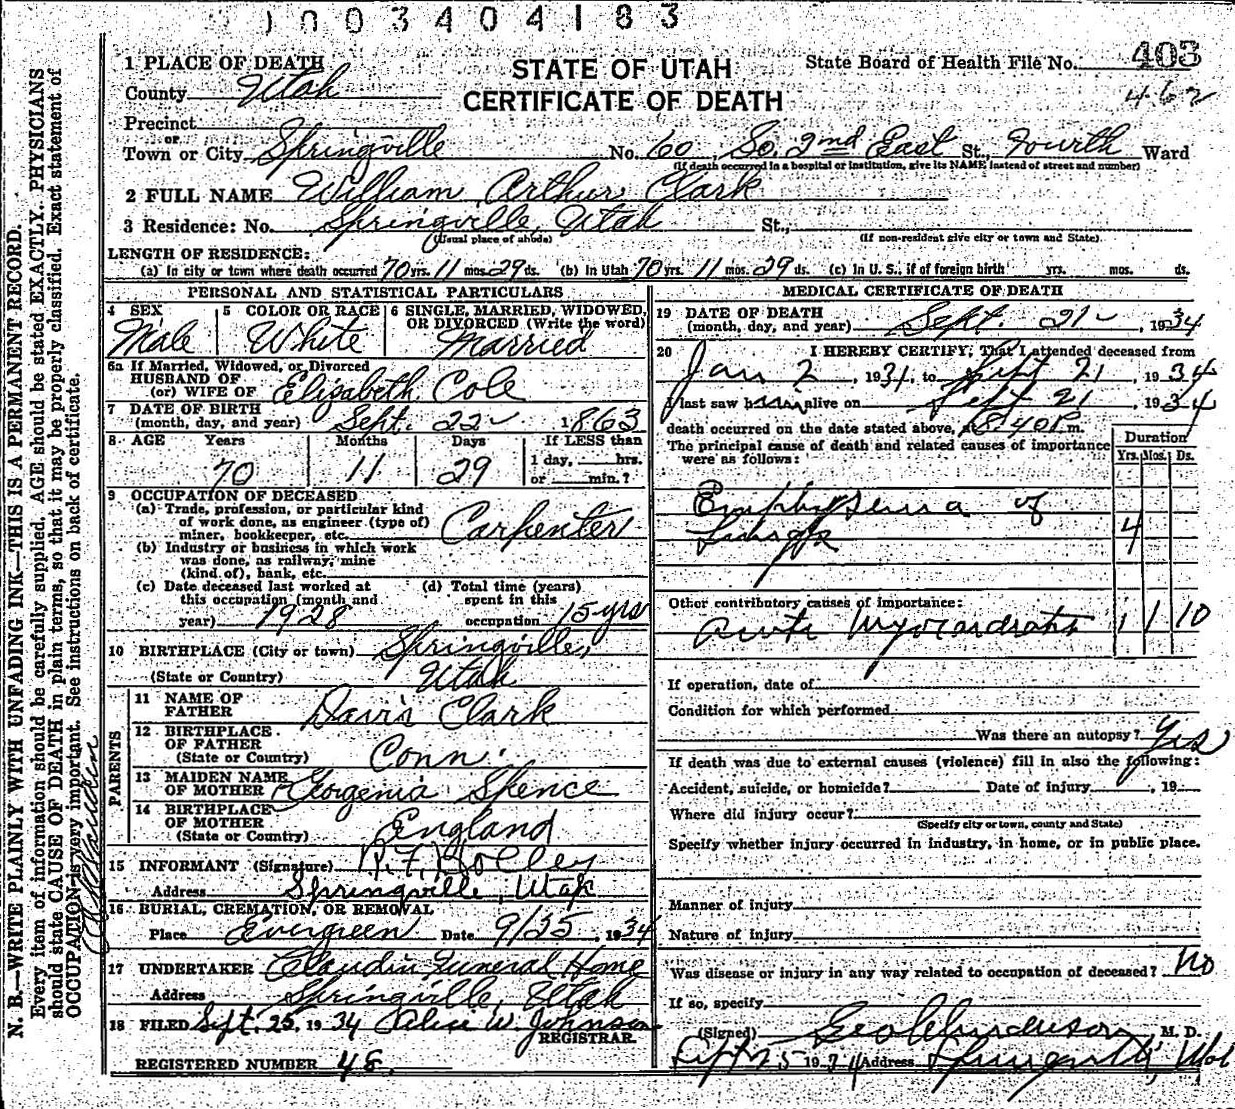 1003404183
STATE OF UTAH
CERTIFICATE OF DEATH
State Board of Health File No. 403
462
1 PLACE OF DEATH
County Utah
Precinct
or
Town or City Springville No. 60 So. 2nd East St., Fourth Ward
(If death occurred in a hospital or institution, give its NAME instead of street and number)
2 FULL NAME William Arthur Clark
3 Residence: No. Springville, Utah St.,
(Usual place of abode) (If non-resident give city or town and State)
LENGTH OF RESIDENCE:
(a) In city or town where death occurred 70 yrs. 11 mos. 29 ds. (b) In Utah 70 yrs. 11 mos. 29 ds. (c) In U. S., if of foreign birth yrs. mos. ds.
PERSONAL AND STATISTICAL PARTICULARS
4 SEX
Male
5 COLOR OR RACE
White
6 SINGLE, MARRIED, WIDOWED,
OR DIVORCED (Write the word)
Married
6a If Married, Widowed, or Divorced
HUSBAND OF
(or) WIFE OF Elizabeth Cole
7 DATE OF BIRTH
(month, day, and year) Sept. 22 1863
8 AGE Years Months Days If LESS than
70 11 29 1 day, hrs.
or min.?
9 OCCUPATION OF DECEASED
(a) Trade, profession, or particular kind
of work done, as engineer (type of)
miner, bookkeeper, etc. Carpenter
(b) Industry or business in which work
was done, as railway, mine
(kind of), bank, etc.
(c) Date deceased last worked at
this occupation (month and
year) 1928
(d) Total time (years)
spent in this
occupation 15 yrs
10 BIRTHPLACE (City or town) Springville,
(State or Country) Utah
PARENTS
11 NAME OF
FATHER Davis Clark
12 BIRTHPLACE
OF FATHER
(State or Country) Conn.
13 MAIDEN NAME
OF MOTHER Georgenia Spence
14 BIRTHPLACE
OF MOTHER
(State or Country) England
15 INFORMANT (Signature) R. F. Holley
Address Springville, Utah
16 BURIAL, CREMATION, OR REMOVAL
Place Evergreen Date 9/25, 1934
17 UNDERTAKER Claudin Funeral Home
Address Springville, Utah
18 FILED Sept. 25, 1934 Alice W. Johnson
REGISTRAR.
REGISTERED NUMBER 48.
MEDICAL CERTIFICATE OF DEATH
19 DATE OF DEATH
(month, day, and year) Sept. 21, 1934
20 I HEREBY CERTIFY, That I attended deceased from
Jan 2, 1931, to Sept 21, 1934
I last saw him alive on Sept 21, 1934
death occurred on the date stated above, at 8:40 P. m.
The principal cause of death and related causes of importance
were as follows:
Duration
Yrs. Mos. Ds.
Emphysema of
Lungs 4
Other contributory causes of importance:
Acute Myocarditis 1 1 10
If operation, date of
Condition for which performed
Was there an autopsy? Yes
If death was due to external causes (violence) fill in also the following:
Accident, suicide, or homicide? Date of injury, 19
Where did injury occur?
(Specify city or town, county and State)
Specify whether injury occurred in industry, in home, or in public place.
Manner of injury
Nature of injury
Was disease or injury in any way related to occupation of deceased? No
If so, specify
(Signed) Geo , M. D.
1934 Address Springville, Utah
N. B.—WRITE PLAINLY WITH UNFADING INK—THIS IS A PERMANENT RECORD.
Every item of information should be carefully supplied. AGE should be stated EXACTLY. PHYSICIANS
should state CAUSE OF DEATH in plain terms, so that it may be properly classified. Exact statement of
OCCUPATION is very important. See instructions on back of certificate.